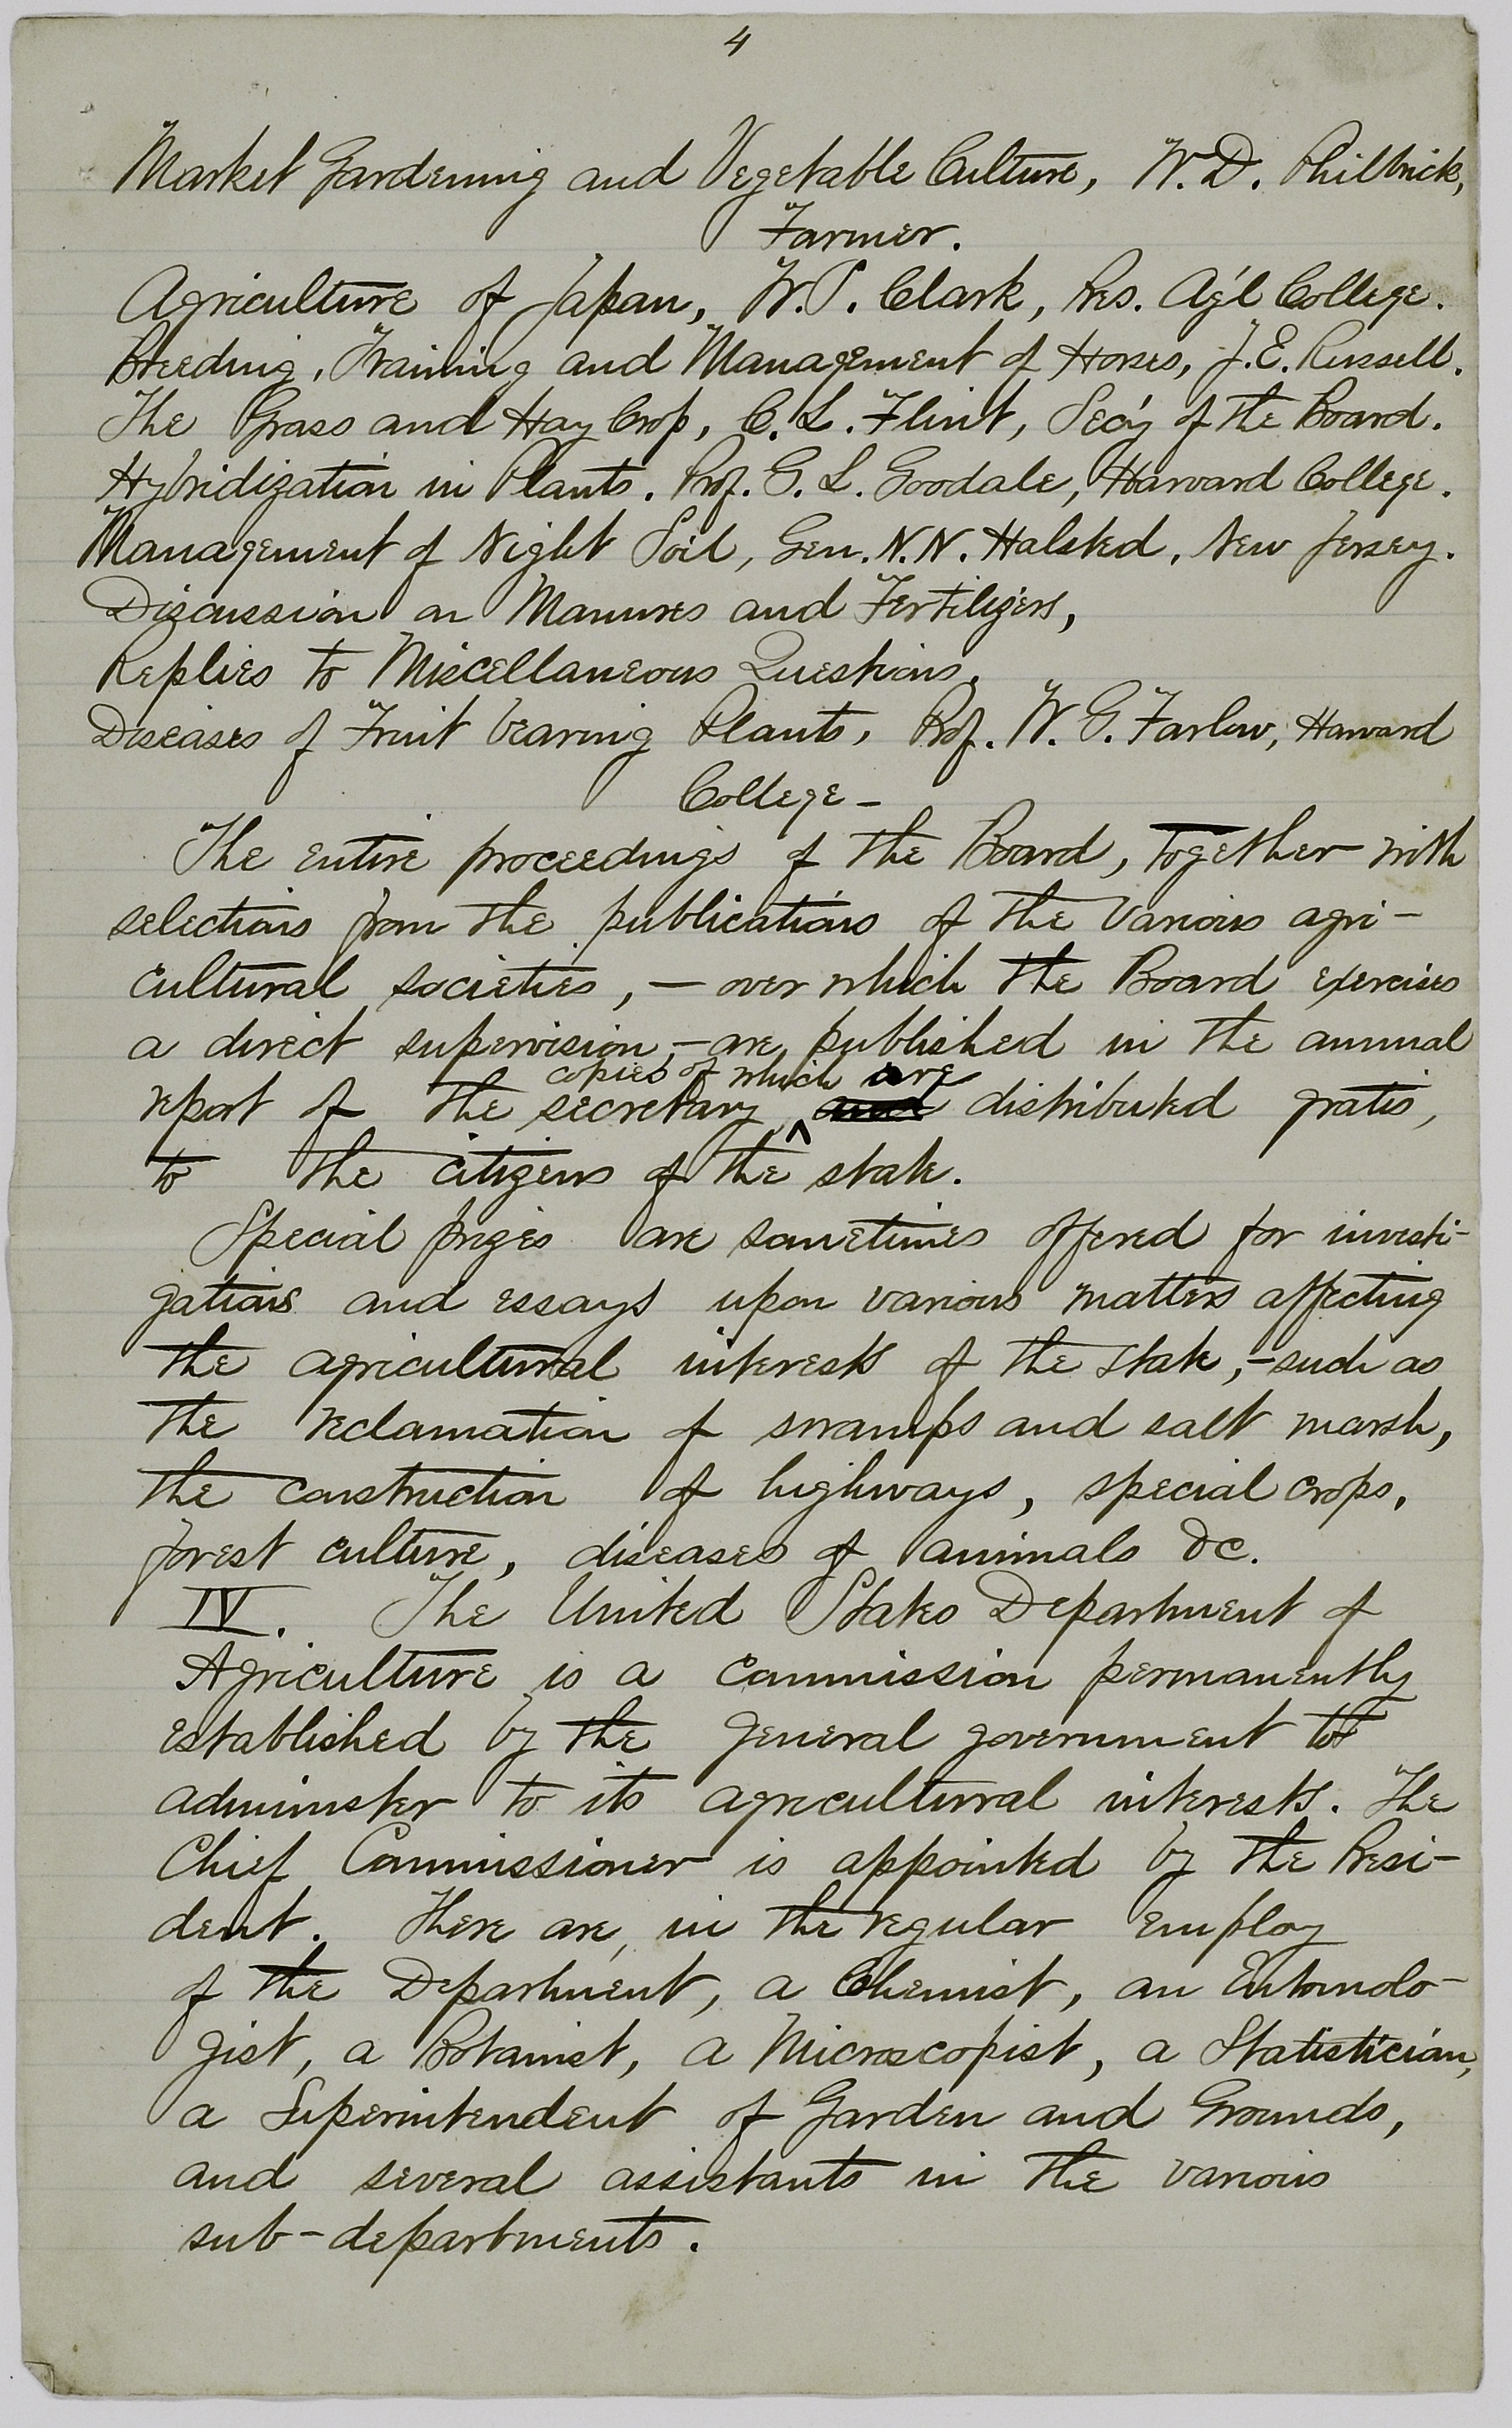 4
Market Gardening and Vegetable Culture, W. D. Philbrick,
Farmer.
Agriculture of Japan, W. S. Clark, Pres. Ag'l College.
Breeding, Training and Management of Horses, J. E. Russell.
The Grass and Hay Crop, C. L. Flint, Sec'y of the Board.
Hybridization in Plants. Prof. G. L. Goodale, Harvard College.
Management of Night Soil, Gen. N. N. Halsted, New Jersey.
Discussion on Manures and Fertilizers,
Replies to Miscellaneous Questions.
Diseases of Fruit bearing Plants, Prof. W. G. Farlow, Harvard
College -
The entire proceedings of the Board, together with
selections from the publications of the various agri-
cultural societies, - over which the Board exercises
a direct supervision, - are published in the annual
copies of which are
report of the secretary, ^ distributed gratis,
to the citizens of the state.
Special prizes are sometimes offered for investi-
gations and essays upon various matters affecting
the agricultural interests of the state, - such as
the reclamation of swamps and salt marsh,
the construction of highways, special crops,
forest culture, diseases of animals &c.
IV. The United States Department of
Agriculture is a commission permanently
established by the general government to
administer to its agricultural interests. The
Chief Commissioner is appointed by the Presi-
dent. There are, in the regular employ
of the Department, a Chemist, an Entomolo-
gist, a Botanist, a Microscopist, a Statistician,
a Superintendent of Garden and Grounds,
and several assistants in the various
sub-departments.